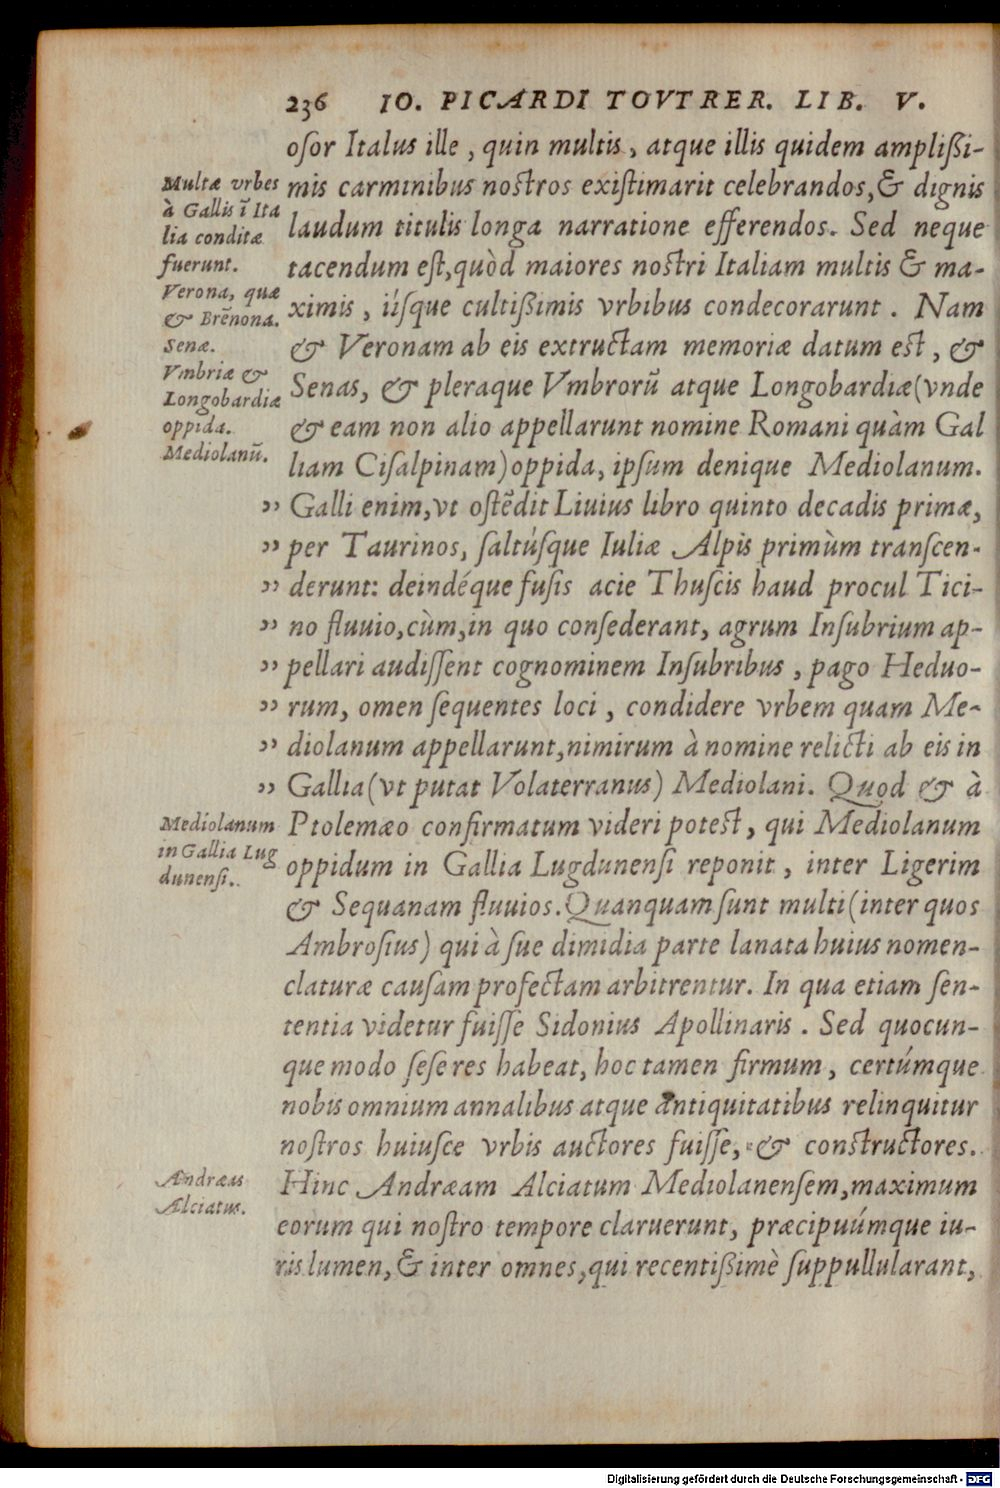 236 IO. PICARDI TOVTRER. LIB. V.
osor Italus ille, quin multis, atque illis quidem amplißi-
mis carminibus nostros existimarit celebrandos, & dignis
laudum titulis longa narratione efferendos. Sed neque
tacendum est, quòd maiores nostri Italiam multis & ma-
ximis, iísque cultißimis vrbibus condecorarunt. Nam
& Veronam ab eis extructam memoriæ datum est, &
Senas, & pleraque Vmbrorũ atque Longobardiæ (vnde
& eam non alio appellarunt nomine Romani quàm Gal
liam Cisalpinam) oppida, ipsum denique Mediolanum.
” Galli enim, vt ostẽdit Liuius libro quinto decadis primæ,
” per Taurinos, saltúsque Iuliæ Alpis primùm transcen-
” derunt: deindéque fusis acie Thuscis haud procul Tici-
” no fluuio, cùm, in quo consederant, agrum Insubrium ap-
” pellari audissent cognominem Insubribus, pago Heduo-
” rum, omen sequentes loci, condidere vrbem quam Me-
” diolanum appellarunt, nimirum à nomine relicti ab eis in
” Gallia (vt putat Volaterranus) Mediolani. Quod & à
Ptolemæo confirmatum videri potest, qui Mediolanum
oppidum in Gallia Lugdunensi reponit, inter Ligerim
& Sequanam fluuios. Quanquam sunt multi (inter quos
Ambrosius) qui à sue dimidia parte lanata huius nomen-
claturæ causam profectam arbitrentur. In qua etiam sen-
tentia videtur fuisse Sidonius Apollinaris. Sed quocun-
que modo sese res habeat, hoc tamen firmum, certúmque
nobis omnium annalibus atque antiquitatibus relinquitur
nostros huiusce vrbis auctores fuisse, & constructores.
Hinc Andræam Alciatum Mediolanensem, maximum
eorum qui nostro tempore claruerunt, præcipuúmque iu-
ris lumen, & inter omnes, qui recentißimè suppullularant,
Multæ vrbes
à Gallis ĩ Ita
lia conditæ
fuerunt.
Verona, quæ
& Brẽnona.
Senæ.
Vmbriæ &
Longobardiæ
oppida.
Mediolanũ.
Mediolanum
in Gallia Lug
dunensi.
Andræas
Alciatus.
Digitalisierung gefördert durch die Deutsche Forschungsgemeinschaft - DFG